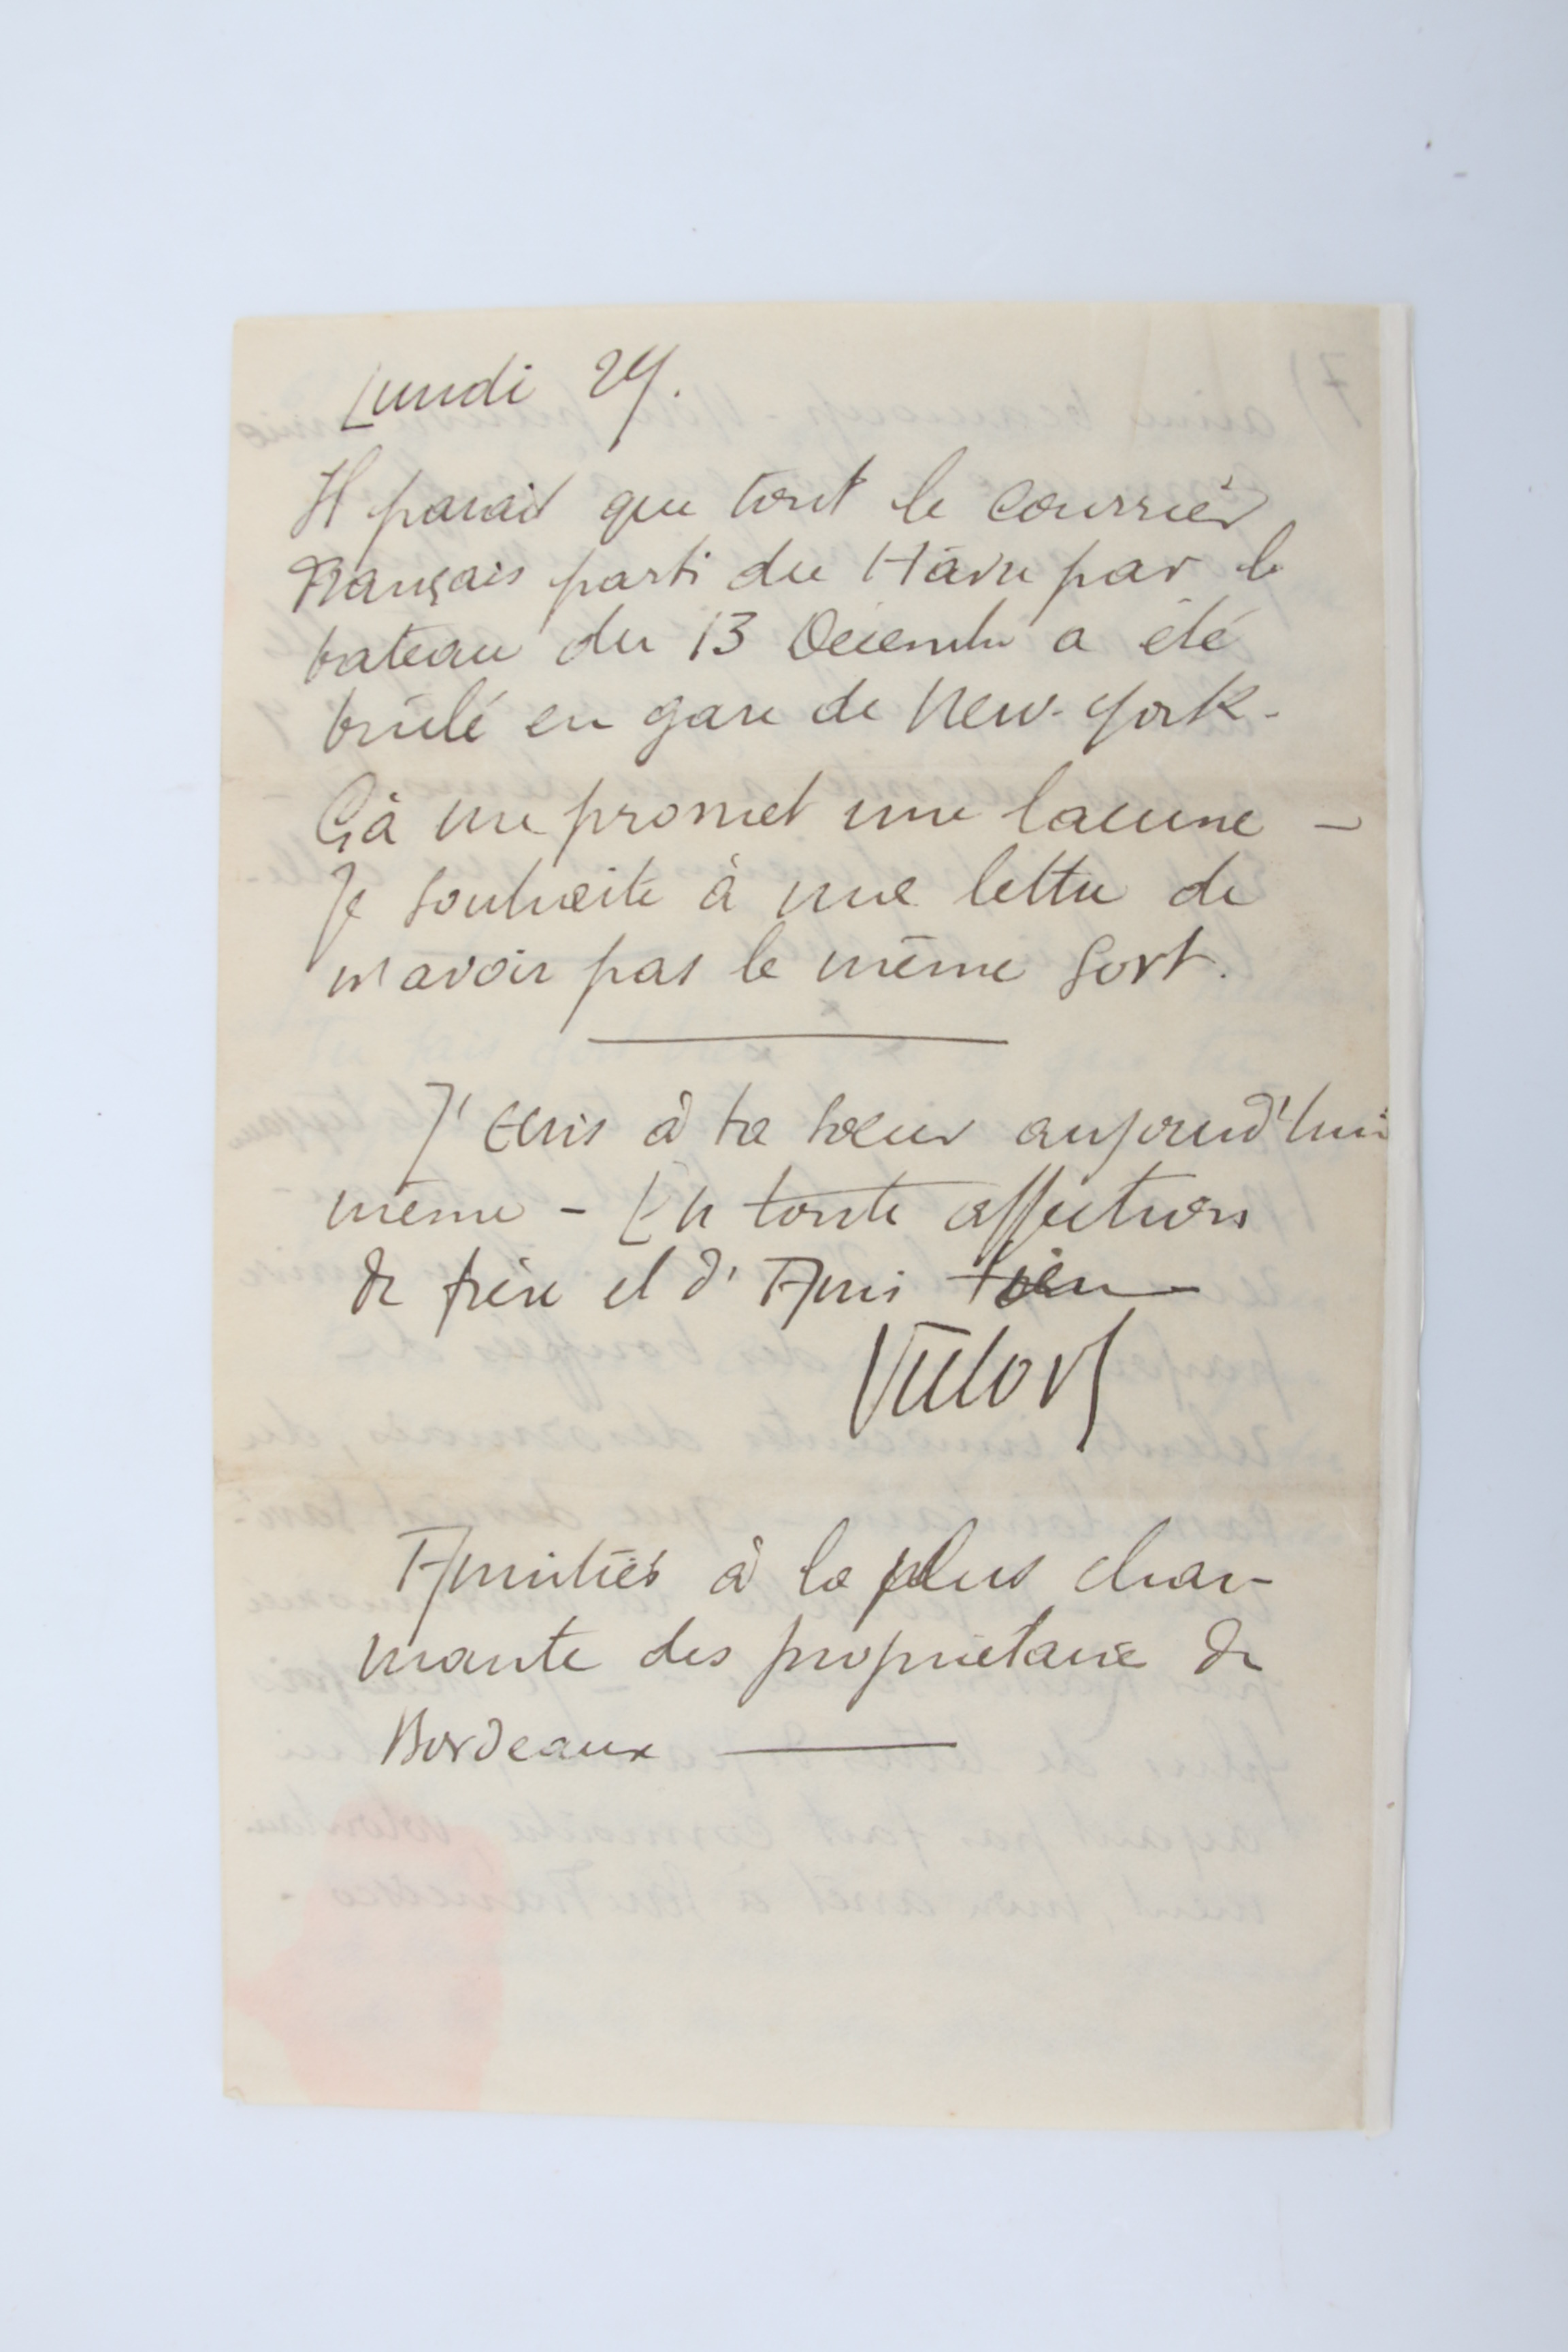 Lundi 29.
Il parait que tout le courrier
Français parti du Hâvre par le
bateau du 13 Décembre a été
brûlé en gare de New-York -
Çà me promet une lacune -
Je souhaite à ma lettre de
n'avoir pas le même sort.
J'écris à ta sœur aujourd'hui
même - En toute affection
de frère et d'Ami tien
Victor
Amitiés à la plus char-
mante des propriétaire de
Bordeaux